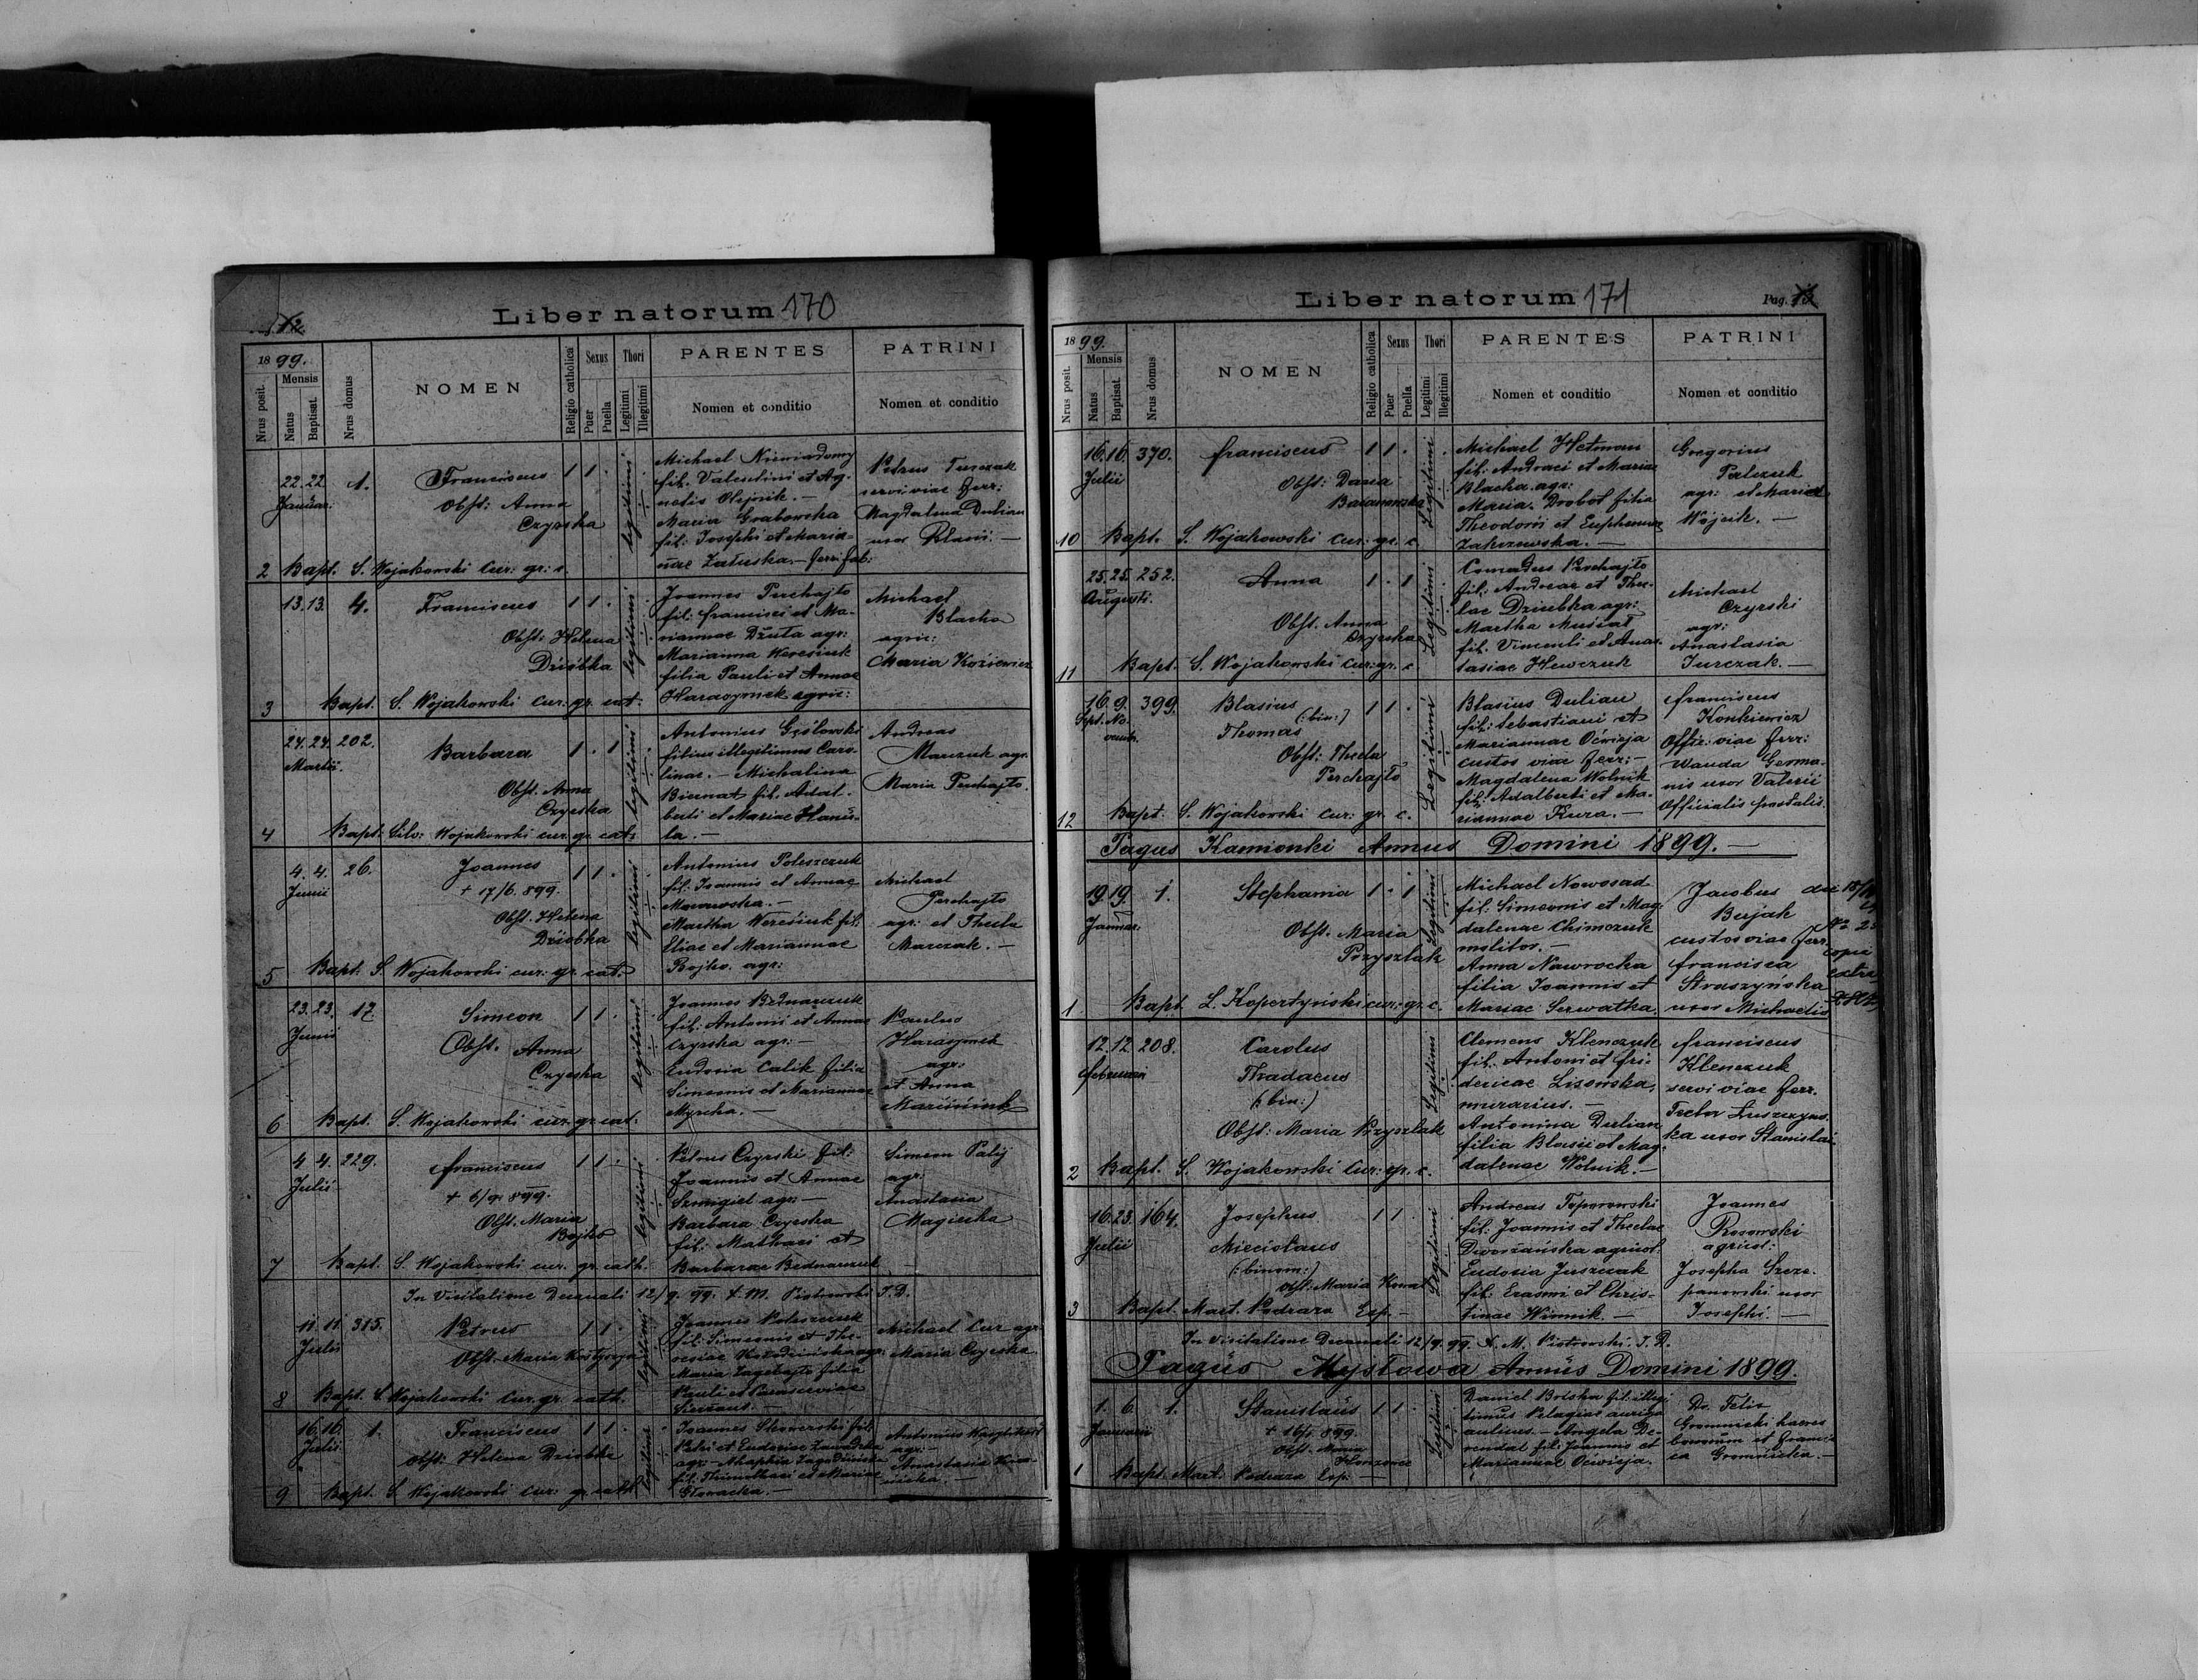 Liber natorum 170
12.
1899.
Nrus posit.
Mensis
Natus
Baptisat.
Nrus domus
NOMEN
Religio catholica
Sexus
Puer
Puella
Thori
Legitimi
Illegitimi
PARENTES
Nomen et conditio
PATRINI
Nomen et conditio
22. 22. 1. Franciscus 1 1 . legitimi
Januar.
Obst: Anna
Czyrska
Michael Niewiadomy
fil. Valentini et Ag-
netis Olejnik. —
Maria Grabowska
fil: Josephi et Maria-
nae Załuska. —
Petrus Turczak
servi viae ferr:
Magdalena Dulian
uxor
2 Bapt. S. Wojakowski cur: gr: c.
13. 13. 4. Franciscus 1 1 . legitimi
Obst: Helena
Dziobka
Joannes Perchajło
fil: Francisci et Ma-
riannae Dziuta agr:
Marianna Weresiuk
filia Pauli et Annae
Harasymek agric:
Michael
Blacha
agric:
Maria
3 Bapt. S. Wojakowski cur. gr. cat.
24. 24. 202. Barbara 1 . 1 legitimi
Martii.
Obst. Anna
Czyrska
Antonius
filius illegitimus Caro-
linae. — Michalina
Biernat fil. Adal-
berti et Mariae Hanus-
ta. —
Andreas
Marczuk agr.
Maria Perchajło.
4 Bapt. Silv: Wojakowski cur. gr. cat.
4. 4. 26. Joannes 1 1 . legitimi
Junii
+ 17/6. 899.
Obst. Helena
Dziobka
Antonius Poleszczuk
fil. Joannis et Annae
Morawska. —
Martha Weresiuk fil.
Eliae et Mariannae
Bojko. agr:
Michael
Perchajło
agr: et Thecla
Marczak. —
5 Bapt. S. Wojakowski cur: gr. cat.
23. 23. 17. Simeon 1 1 . legitimi
Junii
Obst. Anna
Czyrska
Joannes Bednarczuk
fil: Antonii et Annae
Czyrska agr: —
Eudoxia Calik filia
Simeonis et Mariannae
Myrcha. —
Paulus
Harasymek
agr:
et Anna
6 Bapt. S. Wojakowski cur. gr. cat.
4. 4. 229. Franciscus 1 1 . legitimi
Julii
+ 6/9. 899.
Obst. Maria
Bojko
Petrus Czyrski fil:
Joannis et Annae
Szmigiel agr: —
Barbara Czyrska
fil: Mathaei et
Barbarae Bednarczuk
Simeon Palij
agr.
Anastasia
7 Bapt. S. Wojakowski cur. gr. cath.
In Visitatione Decanali 12/9. 99. X. M. Piotrowski J. D.
11. 11. 315. Petrus 1 1 . legitimi
Julii
Obst. Maria
Joannes Poleszczuk
fil: Simeonis et The-
Maria
Pauli et Parasceviae
Michael Cur agr.
Maria Czyrska.
8 Bapt. S. Wojakowski cur. gr. cath.
16. 16. 1. Franciscus 1 1 . legitimi
Julii
Obst: Helena Dziobka
Joannes
Petri et Eudoxiae Zawadzka
agr: —
fil. Thimothaei et Mariae
Głowacka. —
Antonius
agr: —
Anastasia
9 Bapt. S. Wojakowski cur: gr. cath.
Liber natorum 171
Pag. 13
1899.
Nrus posit.
Mensis
Natus
Baptisat.
Nrus domus
NOMEN
Religio catholica
Sexus
Puer
Puella
Thori
Legitimi
Illegitimi
PARENTES
Nomen et conditio
PATRINI
Nomen et conditio
16. 16. 370. Franciscus 1 1 . Legitimi
Julii
Obst: Daria
Baranowska
Michael Hetman
fil: Andraei et Mariae
Blacha. agr:
Maria Drobot filia
Theodori et Euphemiae
Gregorius
Palczuk
agr: et Maria
Wójcik. —
10 Bapt. S. Wojakowski cur: gr. c.
25. 25. 252. Anna 1 . 1 Legitimi
Augusti.
Obst. Anna
Czyrska
Conradus Perchajło
fil: Andreae et The-
clae Dziubka agr:
Martha Musiał
fil. Vincenti et Anas-
tasiae Hewczuk
Michael
Czyrski
agr:
Anastasia
Jurczak. —
11 Bapt. S. Wojakowski cur: gr. c.
16. 9. 399. Blasius 1 1 . Legitimi
Sept. No-
vemb.
(: bin:)
Thomas
Obst: Thecla
Perchajło
Blasius Dulian
fil: Sebastiani et
Mariannae Oćwieja
custos viae ferr: —
Magdalena Wolnik
fil: Adalberti et Ma-
riannae Kura. —
Franciscus
Konkiewicz
Offic: viae ferr:
Wanda Germa-
nis uxor Valerii
Officialis postalis.
12 Bapt. S. Wojakowski cur: gr. c.
Pagus Kamionki Annus Domini 1899. —
19. 19. 1. Stephania 1 . 1 Legitimi
Januar.
Obst. Maria
Przyszlak
Michael Nowosad
fil: Simeonis et Mag-
dalenae Chimczuk
molitor. —
Anna Nawrocka
filia Joannis et
Mariae Serwatka.
Jacobus
Bujak
custos viae ferr.
Francisca
Straszyńska
uxor Michaelis
1 Bapt. L. Kopertyński cur: gr. c.
12. 12. 208. Carolus Legitimi
Februarii
Thadaeus
(: bin:)
Obst: Maria Przyszlak
Clemens Klenczuk
fil: Antoni et Fri-
dericae Lisowska,
murarius. —
Antonina Dulian
filia Blasii et Mag-
dalenae Wolnik. —
Franciscus
Klenczuk
servi viae ferr.
Tecla Łuszczyns-
ka uxor Stanislai
2 Bapt. S. Wojakowski cur: gr. c.
16. 23. 164. Josephus 1 1 . Legitimi
Julii
Miecislaus
(: binom:)
Obst. Maria Kowal
Andreas Toporowski
fil: Joannis et Theclae
Dworzańska agricol:
Eudoxia Juszczak
fil: Erasmi et Chris-
tinae Winnik. —
Joannes
Rosowski
agricol:
Josepha Szcze-
panowski uxor
Josephi. —
3 Bapt. Mart. Podraza Exp. —
In Visitatione Decanali 12/9. 99. X. M. Piotrowski. J. D.
Pagus Mysłowa Annus Domini 1899.
1. 6. 1. Stanislaus 1 1 . Legitimi
Januarii
+ 16/1. 899.
Obst. Maria
Daniel Boiska fil. illegi-
timus Pelagiae auriga
aulicus. — Angela De-
rendal fil: Joannis et
Mariannae Oćwieja.
Dr. Felix
Gromnicki haeres
bonorum et Franci-
ca Gromnicka. —
1 Bapt. Mart. Podraza Exp: —